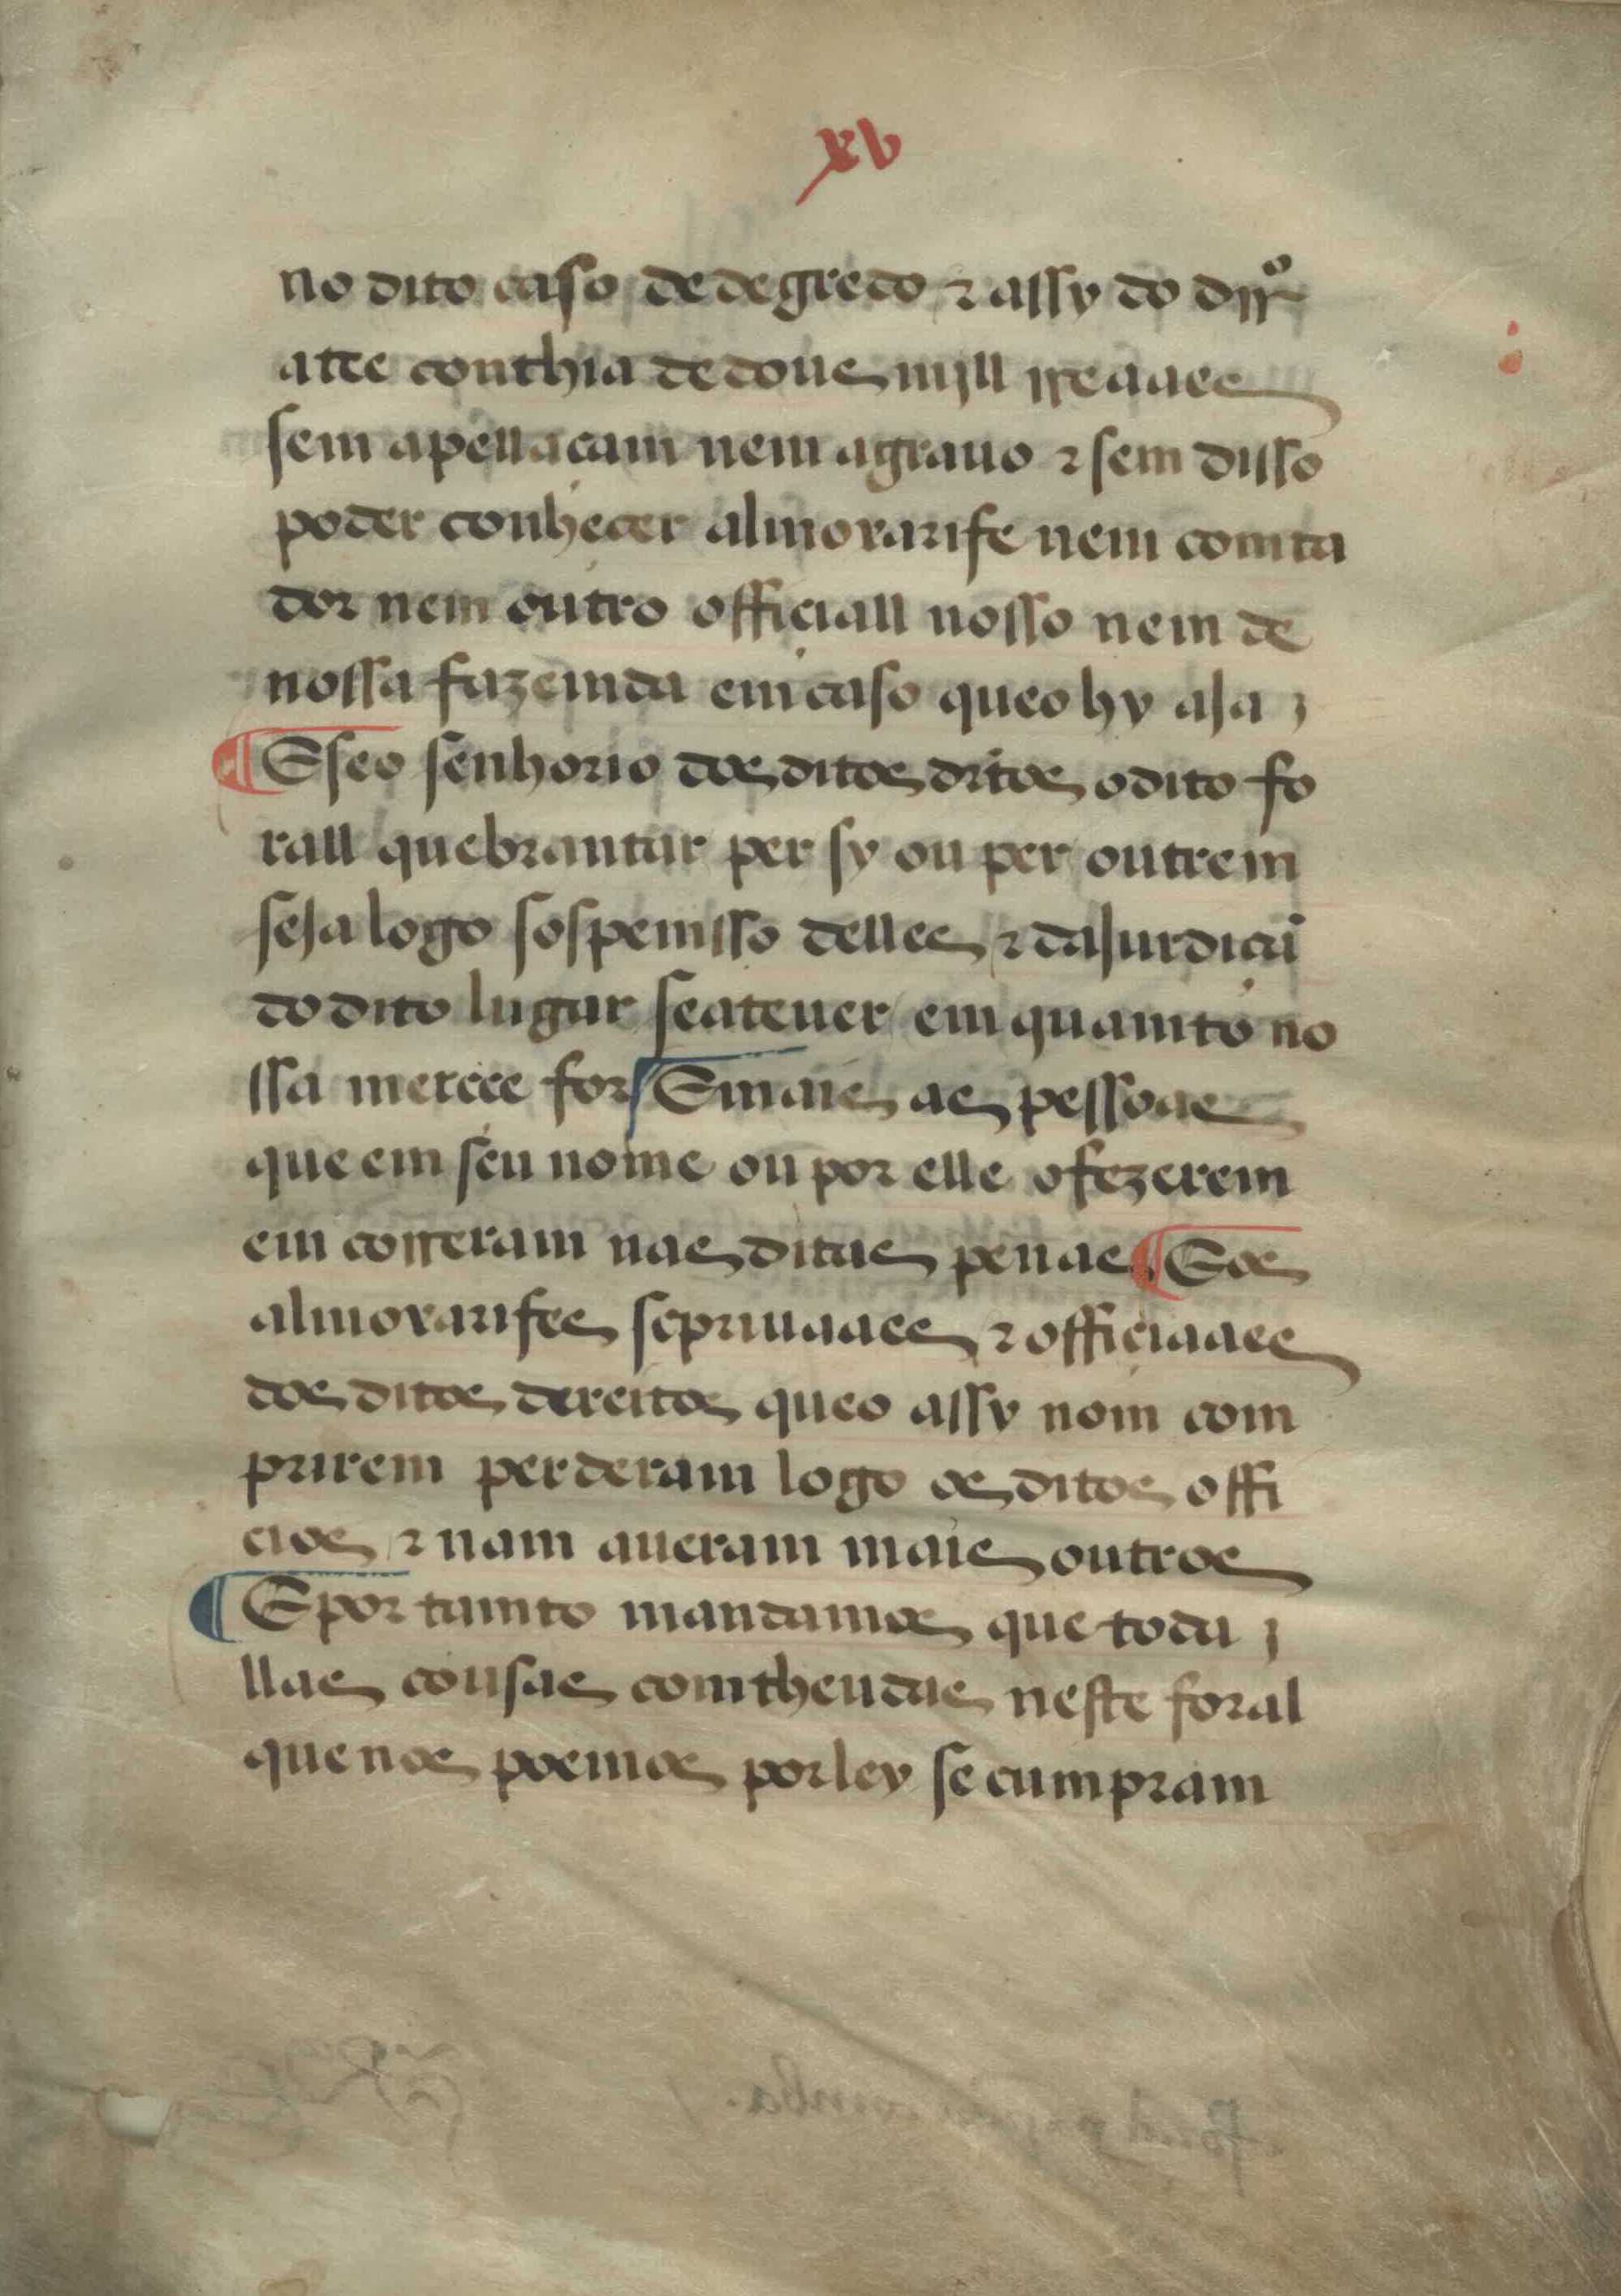 xv
no dito caso de degredo ⁊ assy do dr̃º
atee conthia de dous mjll rreaaes
sem apellaçam nem agrauo ⁊ sem disso
poder conheçer almoxarife nem comta
dor nem outro offiçiall nosso nem de
nossa fazemda em caso que o hy aja ȷ
¶ E se o senhorio dos ditos drtos o dito fo
rall quebrantar per sy ou per outrem
seja logo sospemsso delles ⁊ da jurdiçã
do dito lugar se a teuer em quamto no
ssa merçee for ¶ E mais as pessoas
que em seu nome ou por elle o fezerem
emcorreram nas ditas penas ¶ E os
almoxarifes scpriuaaes ⁊ offiçiaaes
dos ditos dereitos que o assy nom com
prirem perderam logo os ditos offi
cios ⁊ nam aueram mais outros
¶ E por tamto mandamos que toda ȷ
llas cousas comtheudas neste foral
que nos poemos por ley se cumpram